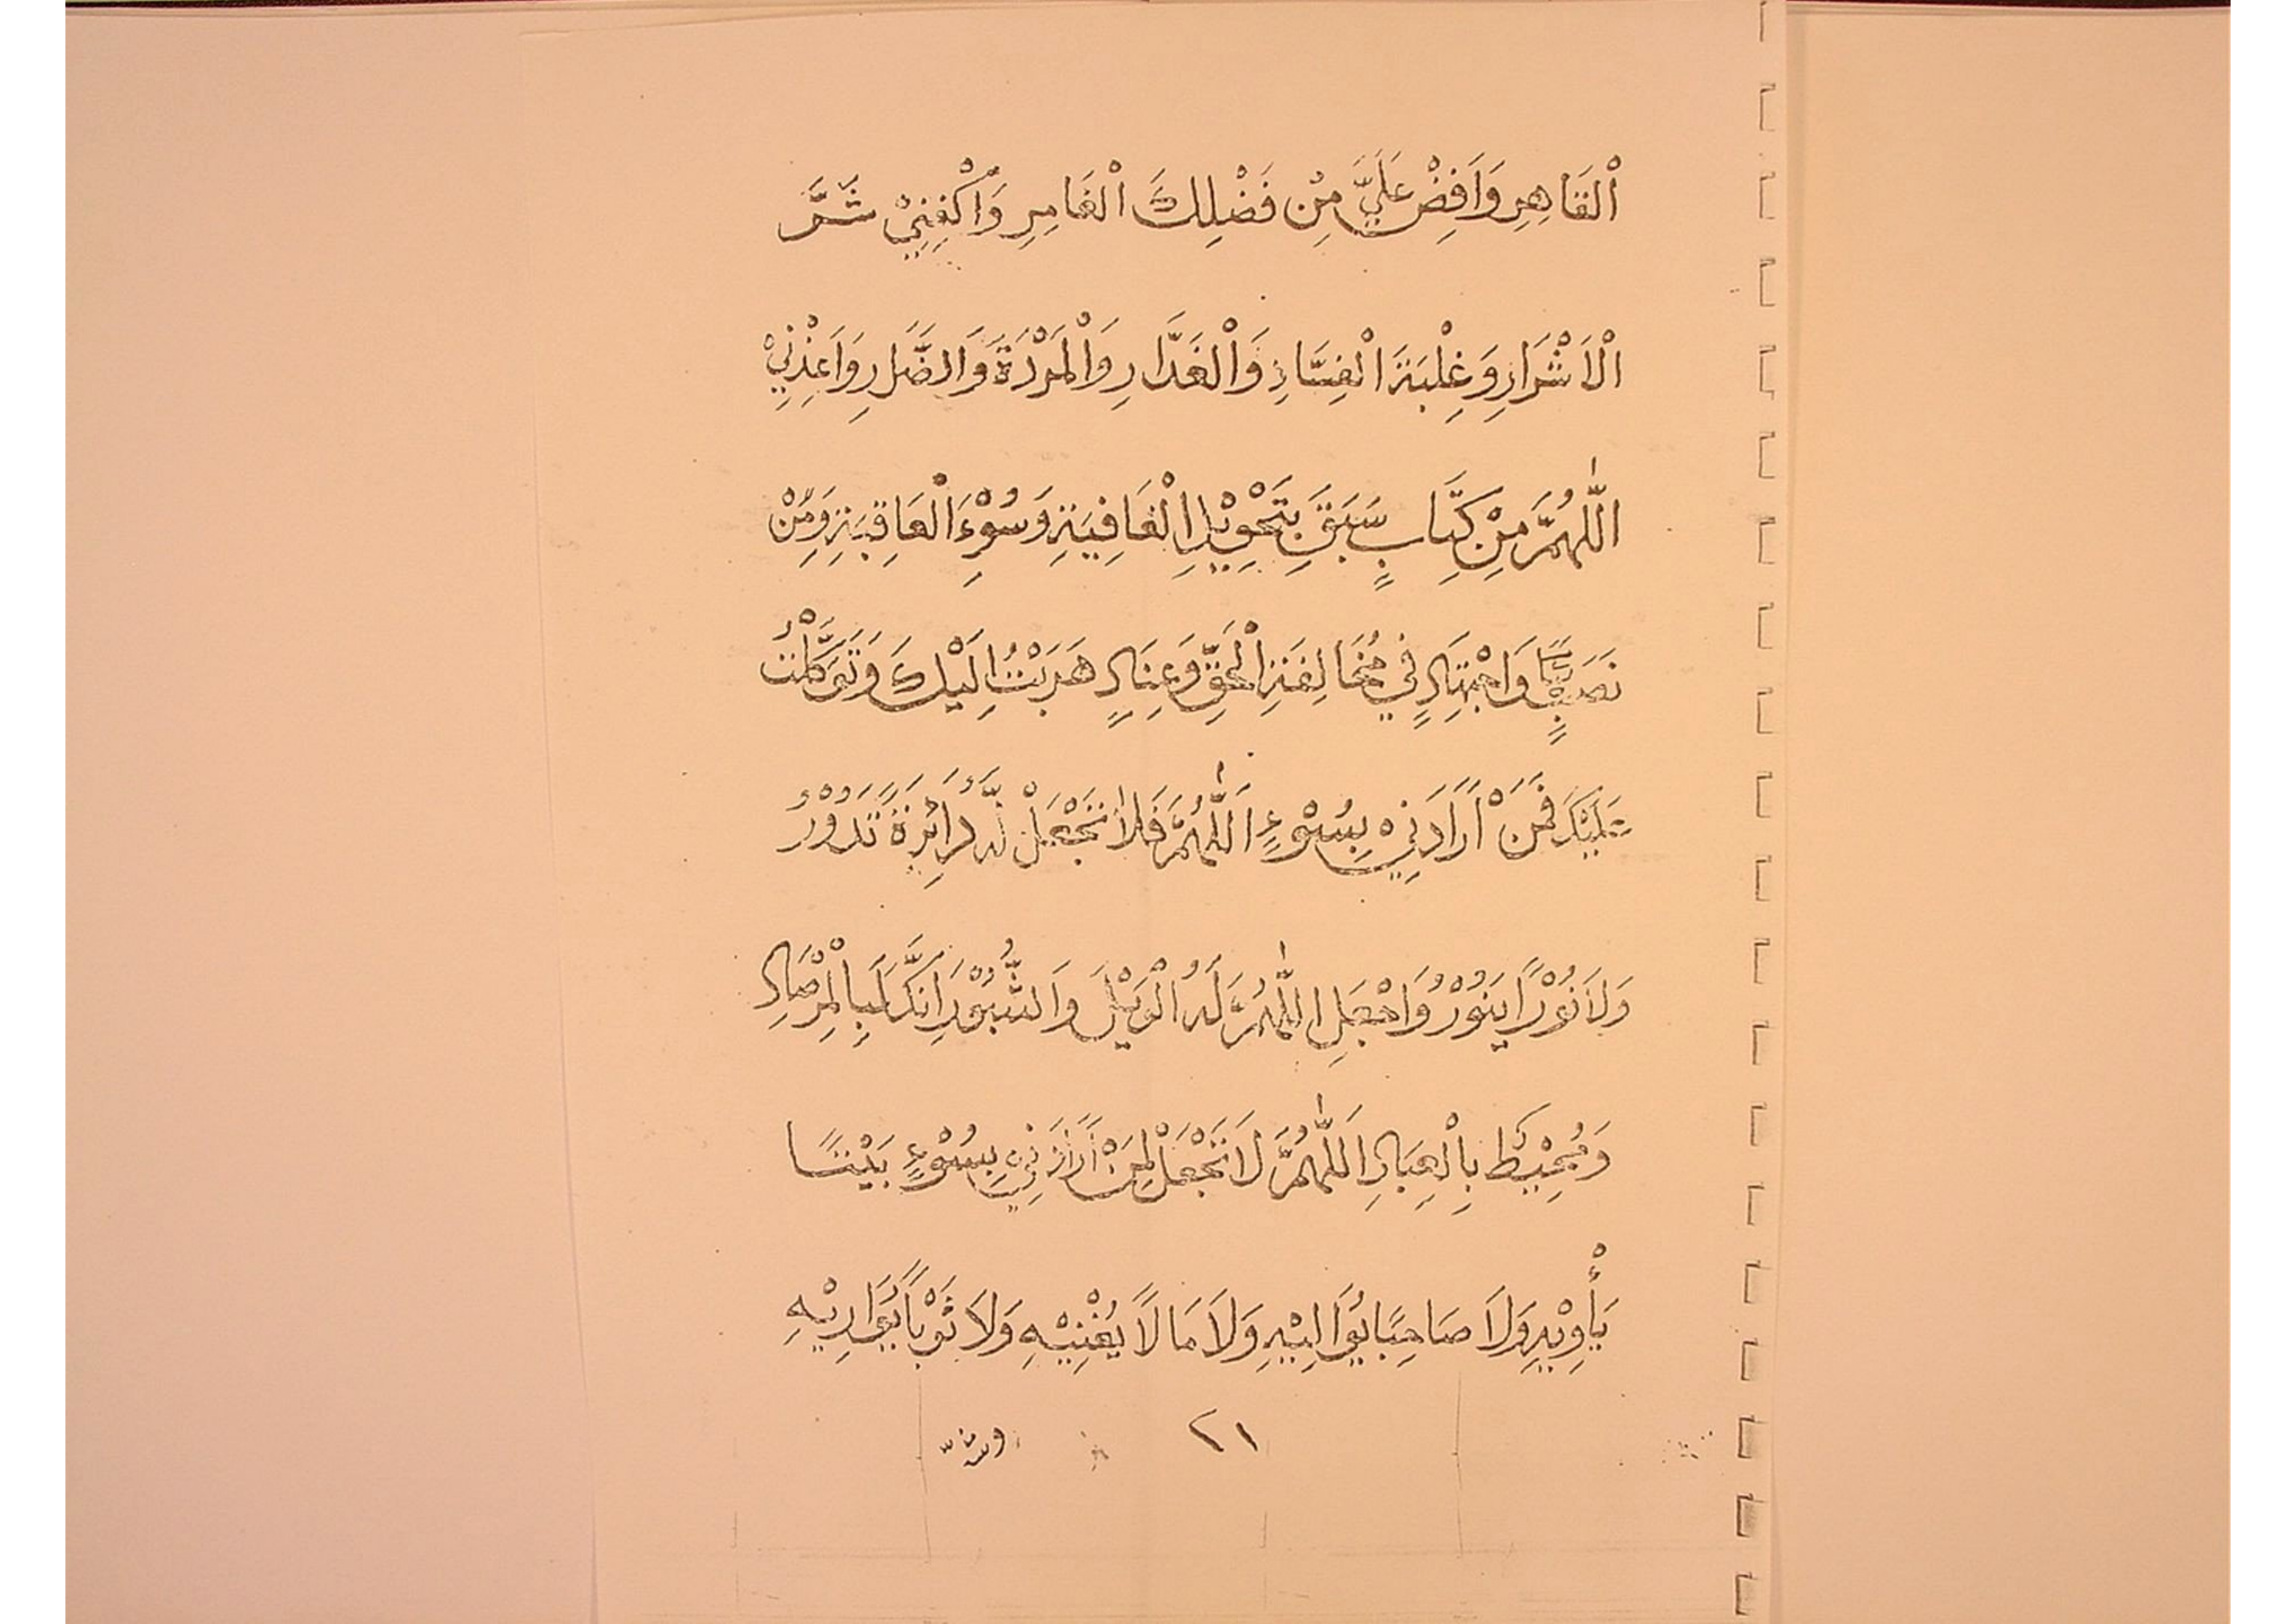 اْلقَاهِرِ وَاَفِضْ عَلَيَّ مِنْ فَضْلِكَ اْلغَامِرِ وَاْكْفِنِيْ شَرَّ
اْلاَشْرَارِ وَغِلْبَةَ اْلفِسَّاذِ وَاْلغَدَّارِ وَاْلمَرْدَةَ وَالضَّلرِ وَاَعِذْنِيْ
اللّٰهُمَّ مِنْ كِتَابٍ سَبَقَ بِتَحْوِيْلِ اْلعَافِيَةِ وَسُوْءِ اْلعَاقِبَةِ وَمِنْ
وَاجْتِهَادٍ فِيْ مُخَالِفَةِ اْلحَقِّ وَعِنَادٍ هَرَبْتُ اِلَيْكَ وَتَوَكَّلْتُ
عَلَيْكَ فَمَنْ اَرَادَنِيْ بِسُوْءٍ اَللّٰهُمَّ فَلاَ تَجْعَلْ لَّهُ دَائِرَةً تَدُوْرُ
وَلاَ نُوْرًا يَنُوْرُ وَاجْعَلِ اللّٰهُمَّ لَهُ اْلوَيْلَ وَالثُّبُوْرَ اِنَّكَ لَبِاْلمِرْصَادِ
وَمُحِيْطٌ بِاْلعِبَادِ اَللّٰهُمَّ لاَ تَجْعَلْ لِمَنْ اَرَادَنِيْ بِسُوْءٍ بَيْتًا
يَأْوِيْهِ وَلاَ صَاحِبًا يُوَالِيْهِ وَلاَ مَالاً يُغْنِيْهِ وَلاَ ثَوْبًا يُوَارِيْهِ
٢١
وشرّ